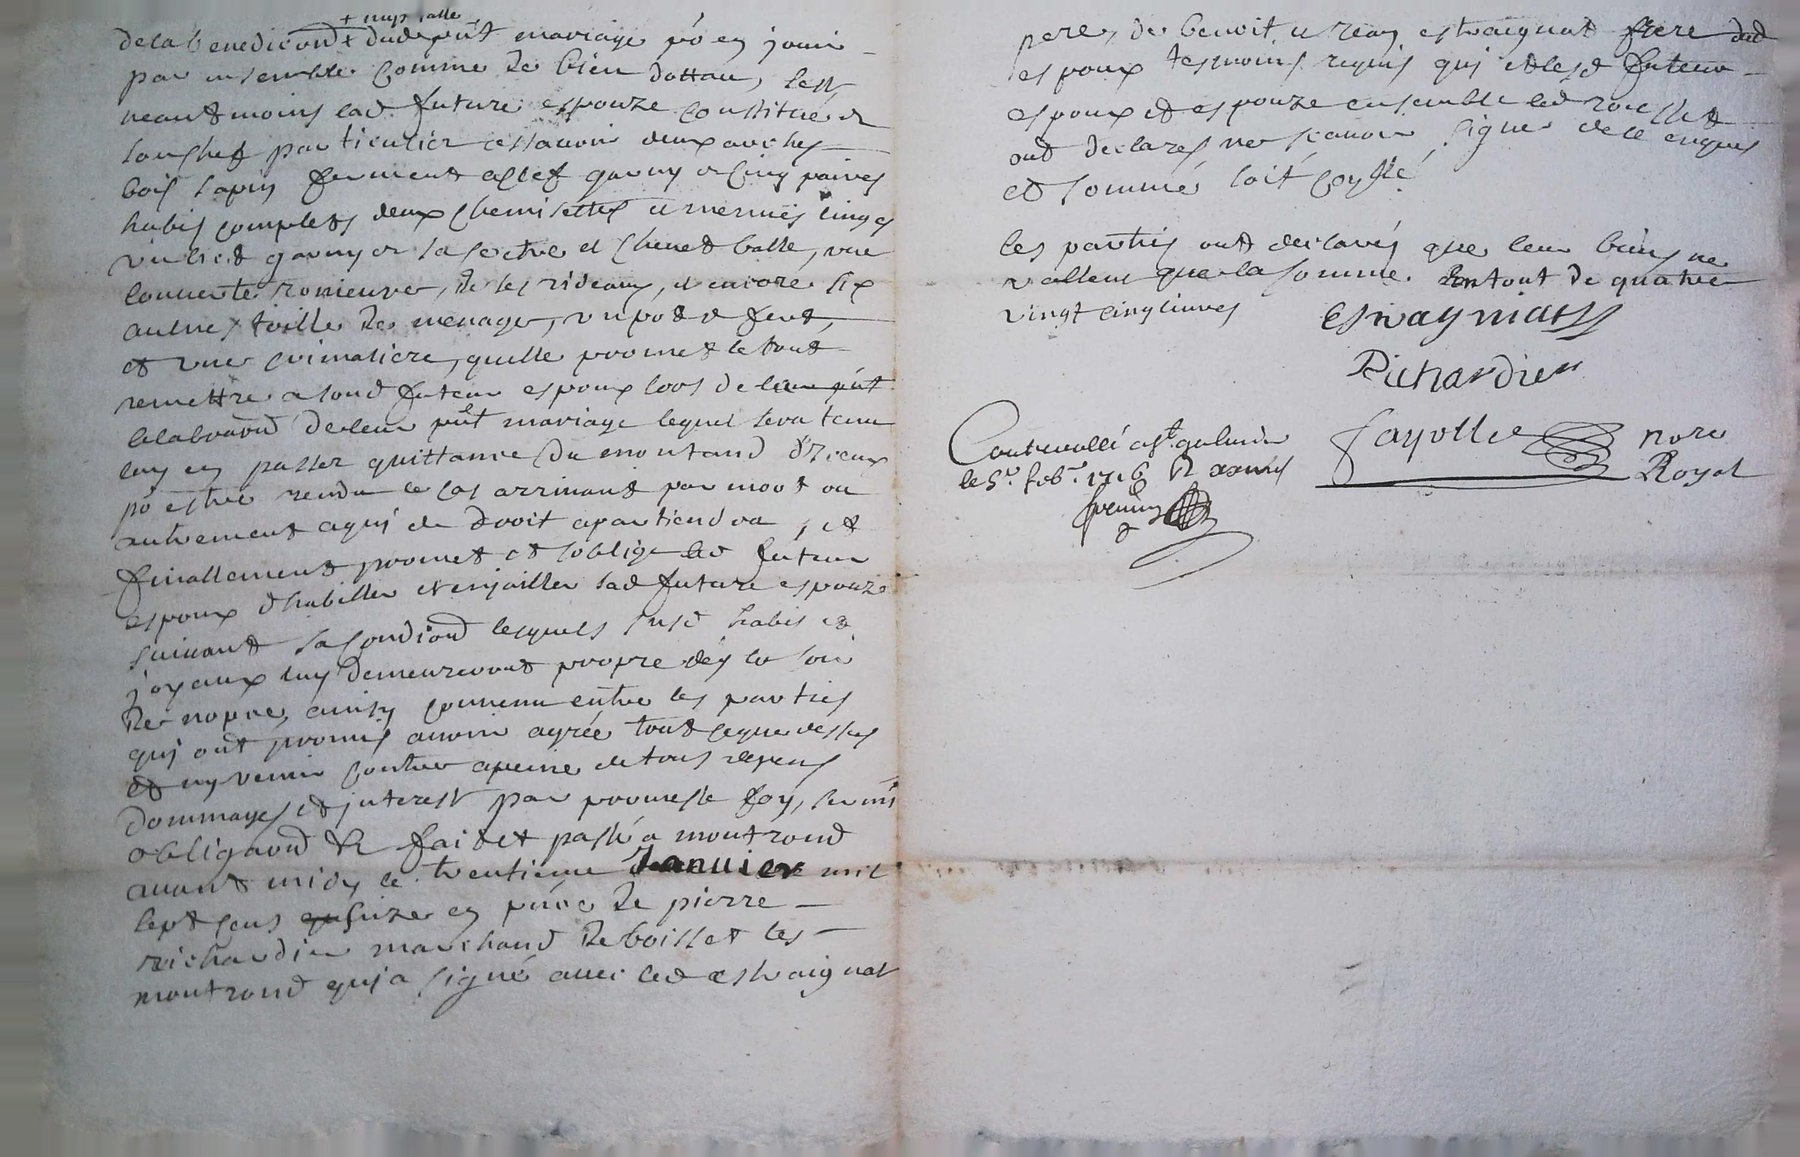 + nuptialle
dela benediction + dud pnt mariage po en jouir
par ensemble comme de bien dottau,
neantmoins lad future espouze constitue
en particulier assavoir deux arches
bois sapin fermant a clef garny de cinq paires
habis complets deux chemisettes
un lict garny de sa
couverte, de ses rideaux, et encore six
aulnes toille de menage, un pot de fert,
et une crimaliere, quelle promet le tout
remettre a sond futeur espoux lors de
celebraond de leur pnt mariage lequel sera tenu
luy en passer quittance du montand d'iceux
po estre rendu le cas arrivant par mort ou
autrement a qui de droit apartiendra, et
finallement promet et soblige led futeur
espoux dhabiller et enjoailler lad future espouze
suivant sa condiond lesquels susd habis et
joyaux luy demeureront propre des le soir
de nopce, ainsy convenu entre les parties
qui ont promis avoir agrée tout ce que dessus
et ny venir contre a peine de tous depens
dommages et interest par promesse foy, serm
obligaond &c faict et passé a montrond
avant midy le trentieme Januier mil
sept cens seize en pnce de pierre
richardier marchand de boisset les
montrond qui a signé avec led estraignat
pere, de benoit et jean estraignat frere dud
espoux tesmoins requis qui et lesd futeur
espoux et espouze ensemble led
ont declares ne scavoir signer de ce enquis
et sommé soit
les parties ont declarés que leur biens ne
vallent que la somme en tout de quatre
vingt cinq livres
Estraygniatt
Richardier
Contrerollé a St galmier
le 5e febr 1716 R
Fayolle nore
Royal